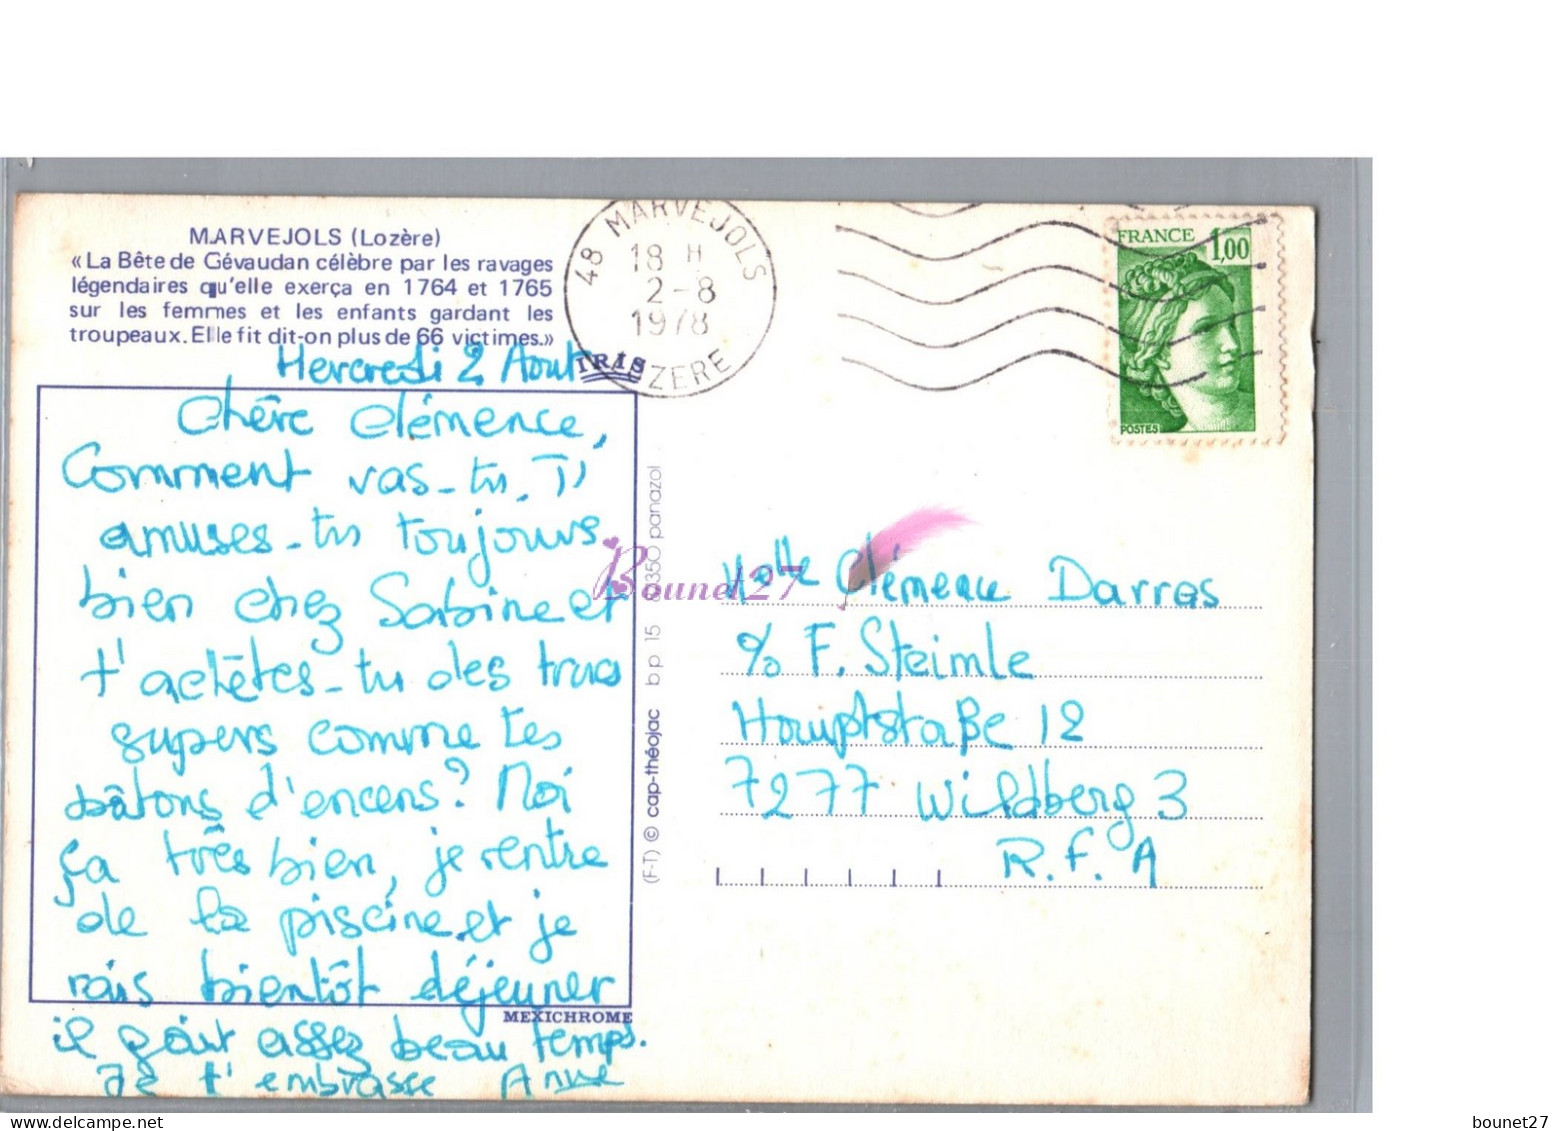 MARVEJOLS (Lozère)
«La Bête de Gévaudan célèbre par les ravages
légendaires qu'elle exerça en 1764 et 1765
sur les femmes et les enfants gardant les
troupeaux. Elle fit dit-on plus de 66 victimes.»
48 MARVEJOLS
18 H
2-8
1978
LOZERE
FRANCE 1,00
POSTES
IRIS
Mercredi 2 Aout
Chère Clémence,
Comment vas-tu. T'
amuses-tu toujours
bien chez Sabine et
t'achètes-tu des trucs
supers comme tes
bâtons d'encens? Moi
ça très bien, je rentre
de la piscine et je
vais bientôt déjeuner
il fait assez beau temps.
Je t'embrasse Anne
MEXICHROME
(F-T) © cap-théojac bp 15 8350 panazol
Bounet27
Melle Clémence Darras
c/o F. Steimle
Hauptstaße 12
7277 Wildberg 3
R.F.A
bounet27